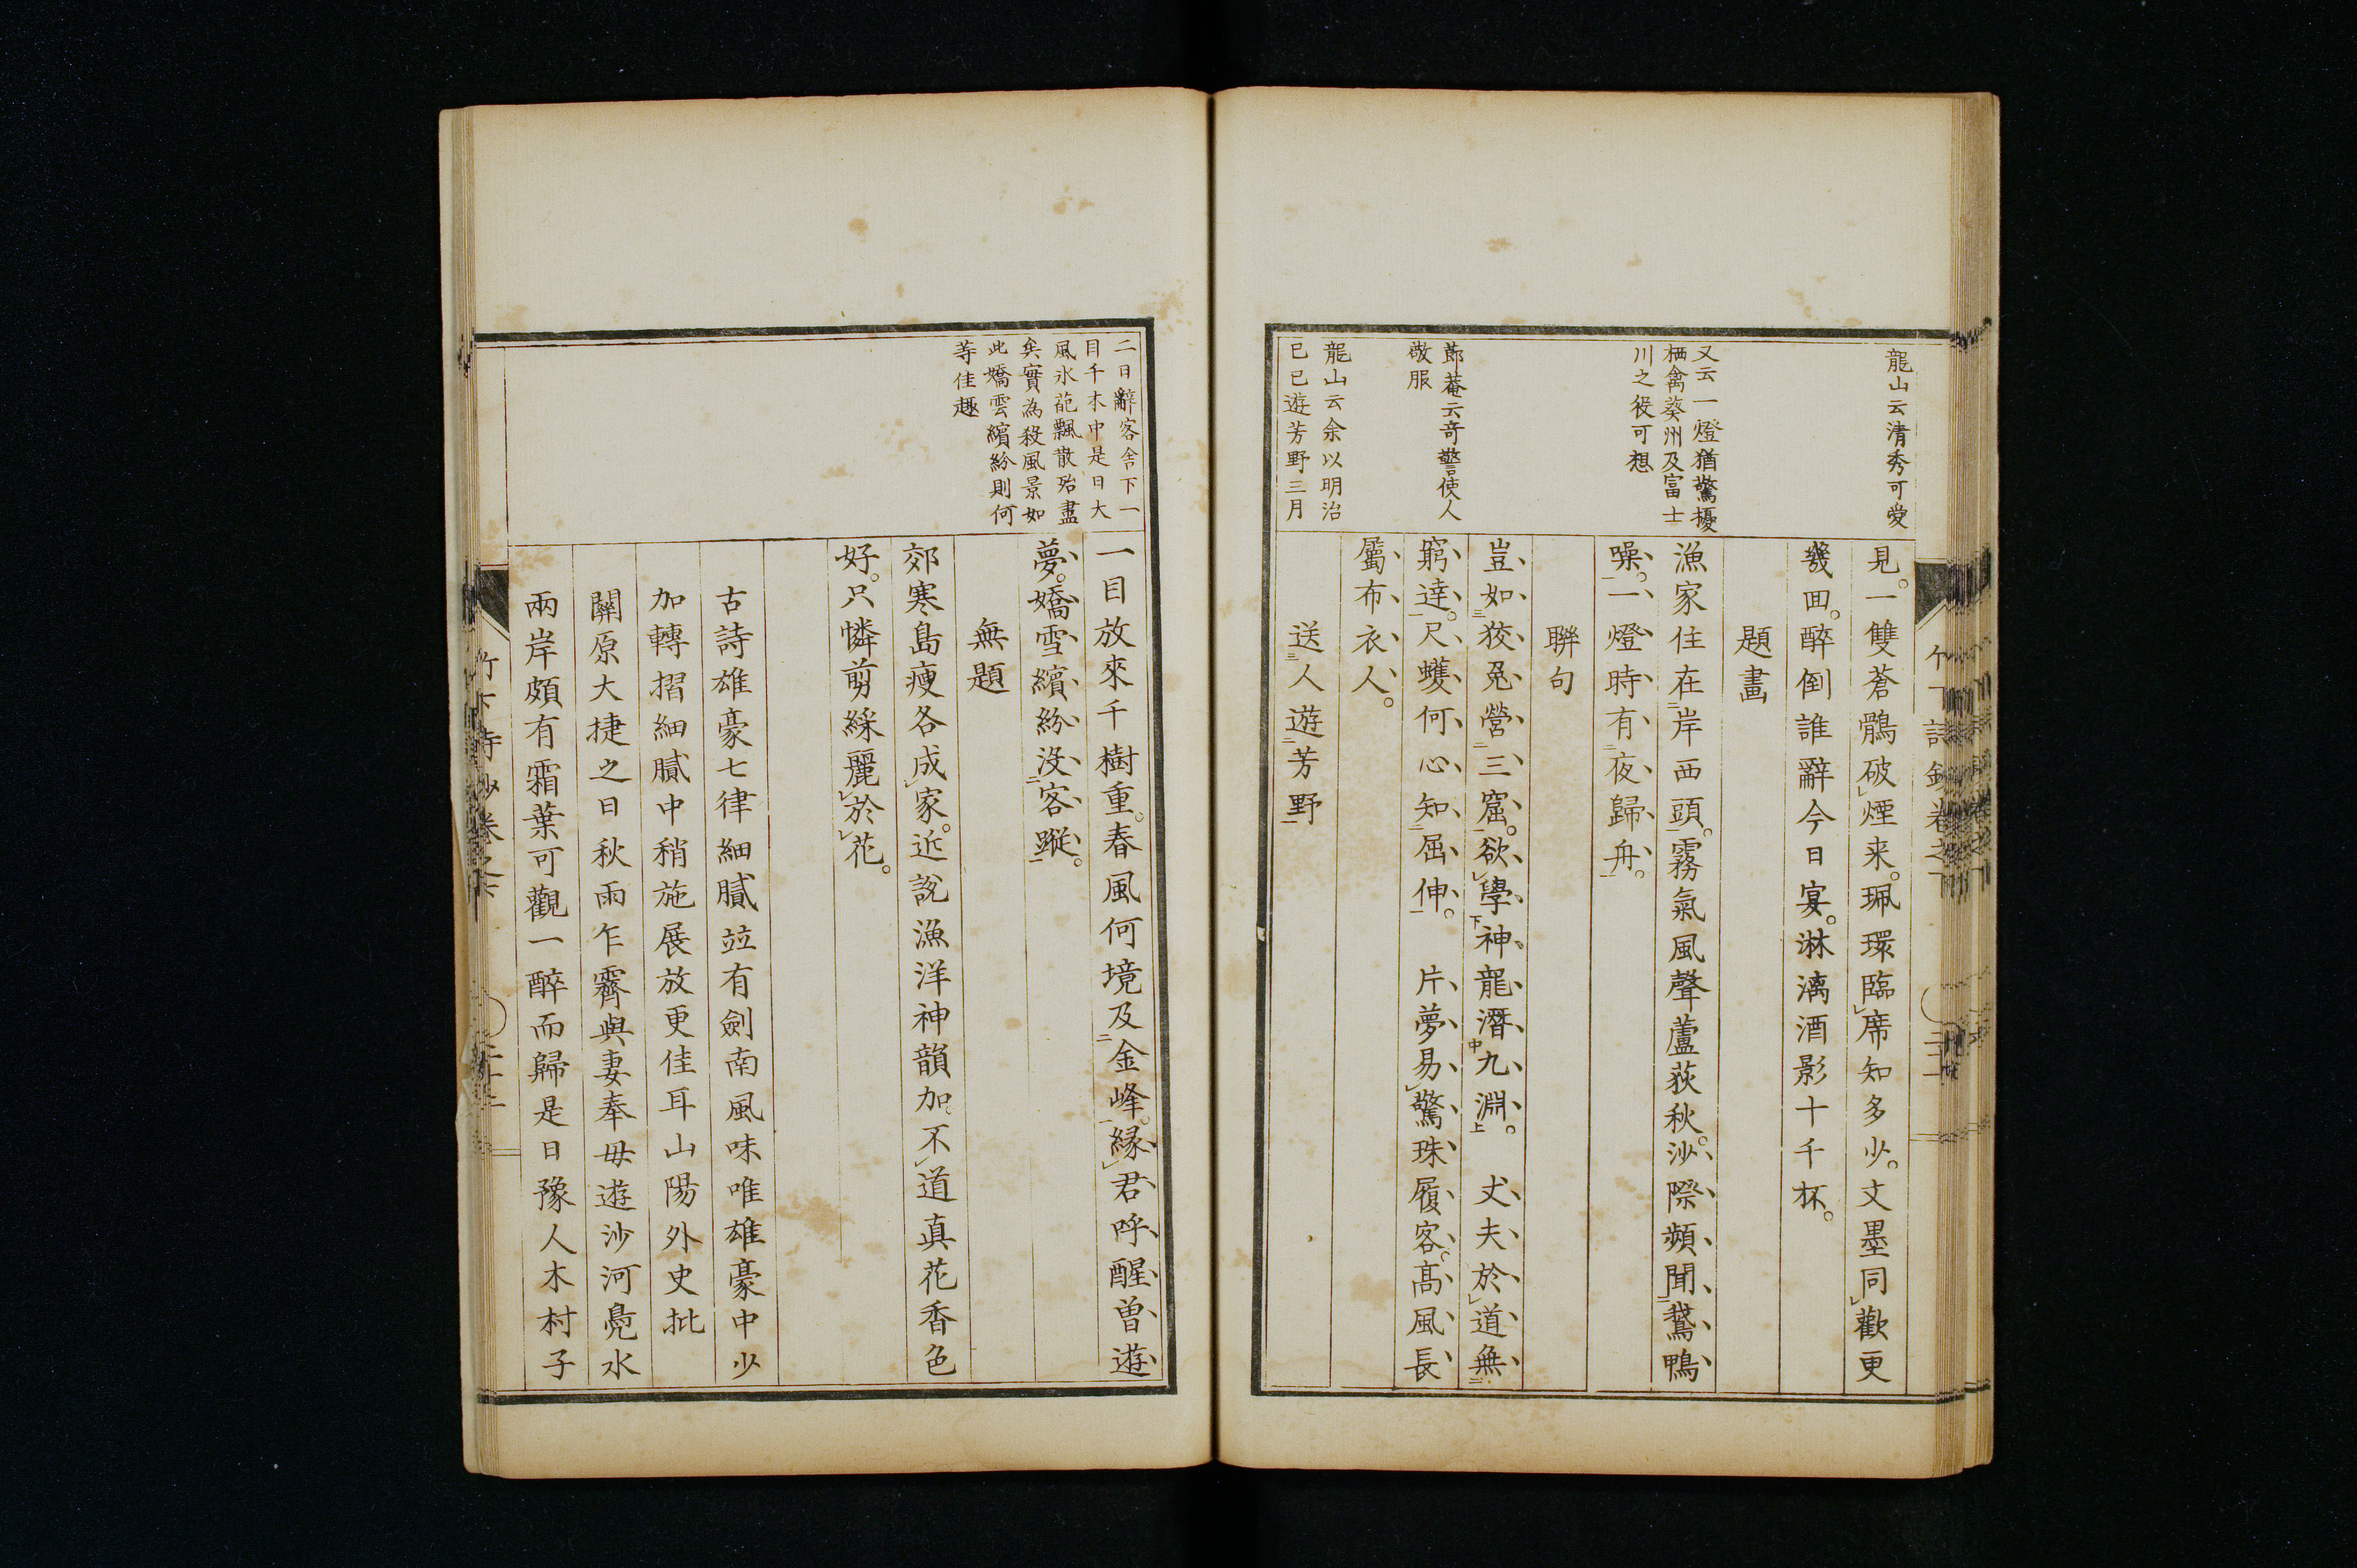 龍山云清秀可愛
又云一燈猶驚擾
栖禽葵州及富士
川之役可想
節菴云奇警使人
敬服
龍山云余以明治
己巳遊芳野三月
見。一雙蒼鶻破煙来。珮環臨席知多少。文墨同歡更
幾回。醉倒誰辭今日宴。淋漓酒影十千杯。
題畫
漁家住在岸西頭。霧氣風聲蘆荻秋。沙際頻聞鵞鴨
噪。一燈時有夜歸舟。
聯句
豈如狡兔營三窟。欲學神龍潛九淵。 丈夫於道無
窮達。尺蠖何心知屈伸。 片夢易驚珠履客。高風長
屬布衣人。
送人遊芳野
二日辭客舍下一
目千本中是日大
風氷葩飄散殆盡
矣實為殺風景如
此嬌雲繽紛則何
等佳趣
一目放來千樹重。春風何境及金峰。緣君呼醒曽遊
夢。嬌雪繽紛没客蹤。
無題
郊寒島瘦各成家。近說漁洋神韻加。不道真花香色
好。只憐剪綵麗於花。
古詩雄豪七律細膩竝有劍南風味唯雄豪中少
加轉摺細膩中稍施展放更佳耳山陽外史批
關原大捷之日秋雨乍霽與妻奉母遊沙河亮水
兩岸頗有霜葉可觀一醉而歸是日豫人木村子
竹下詩鈔卷之下